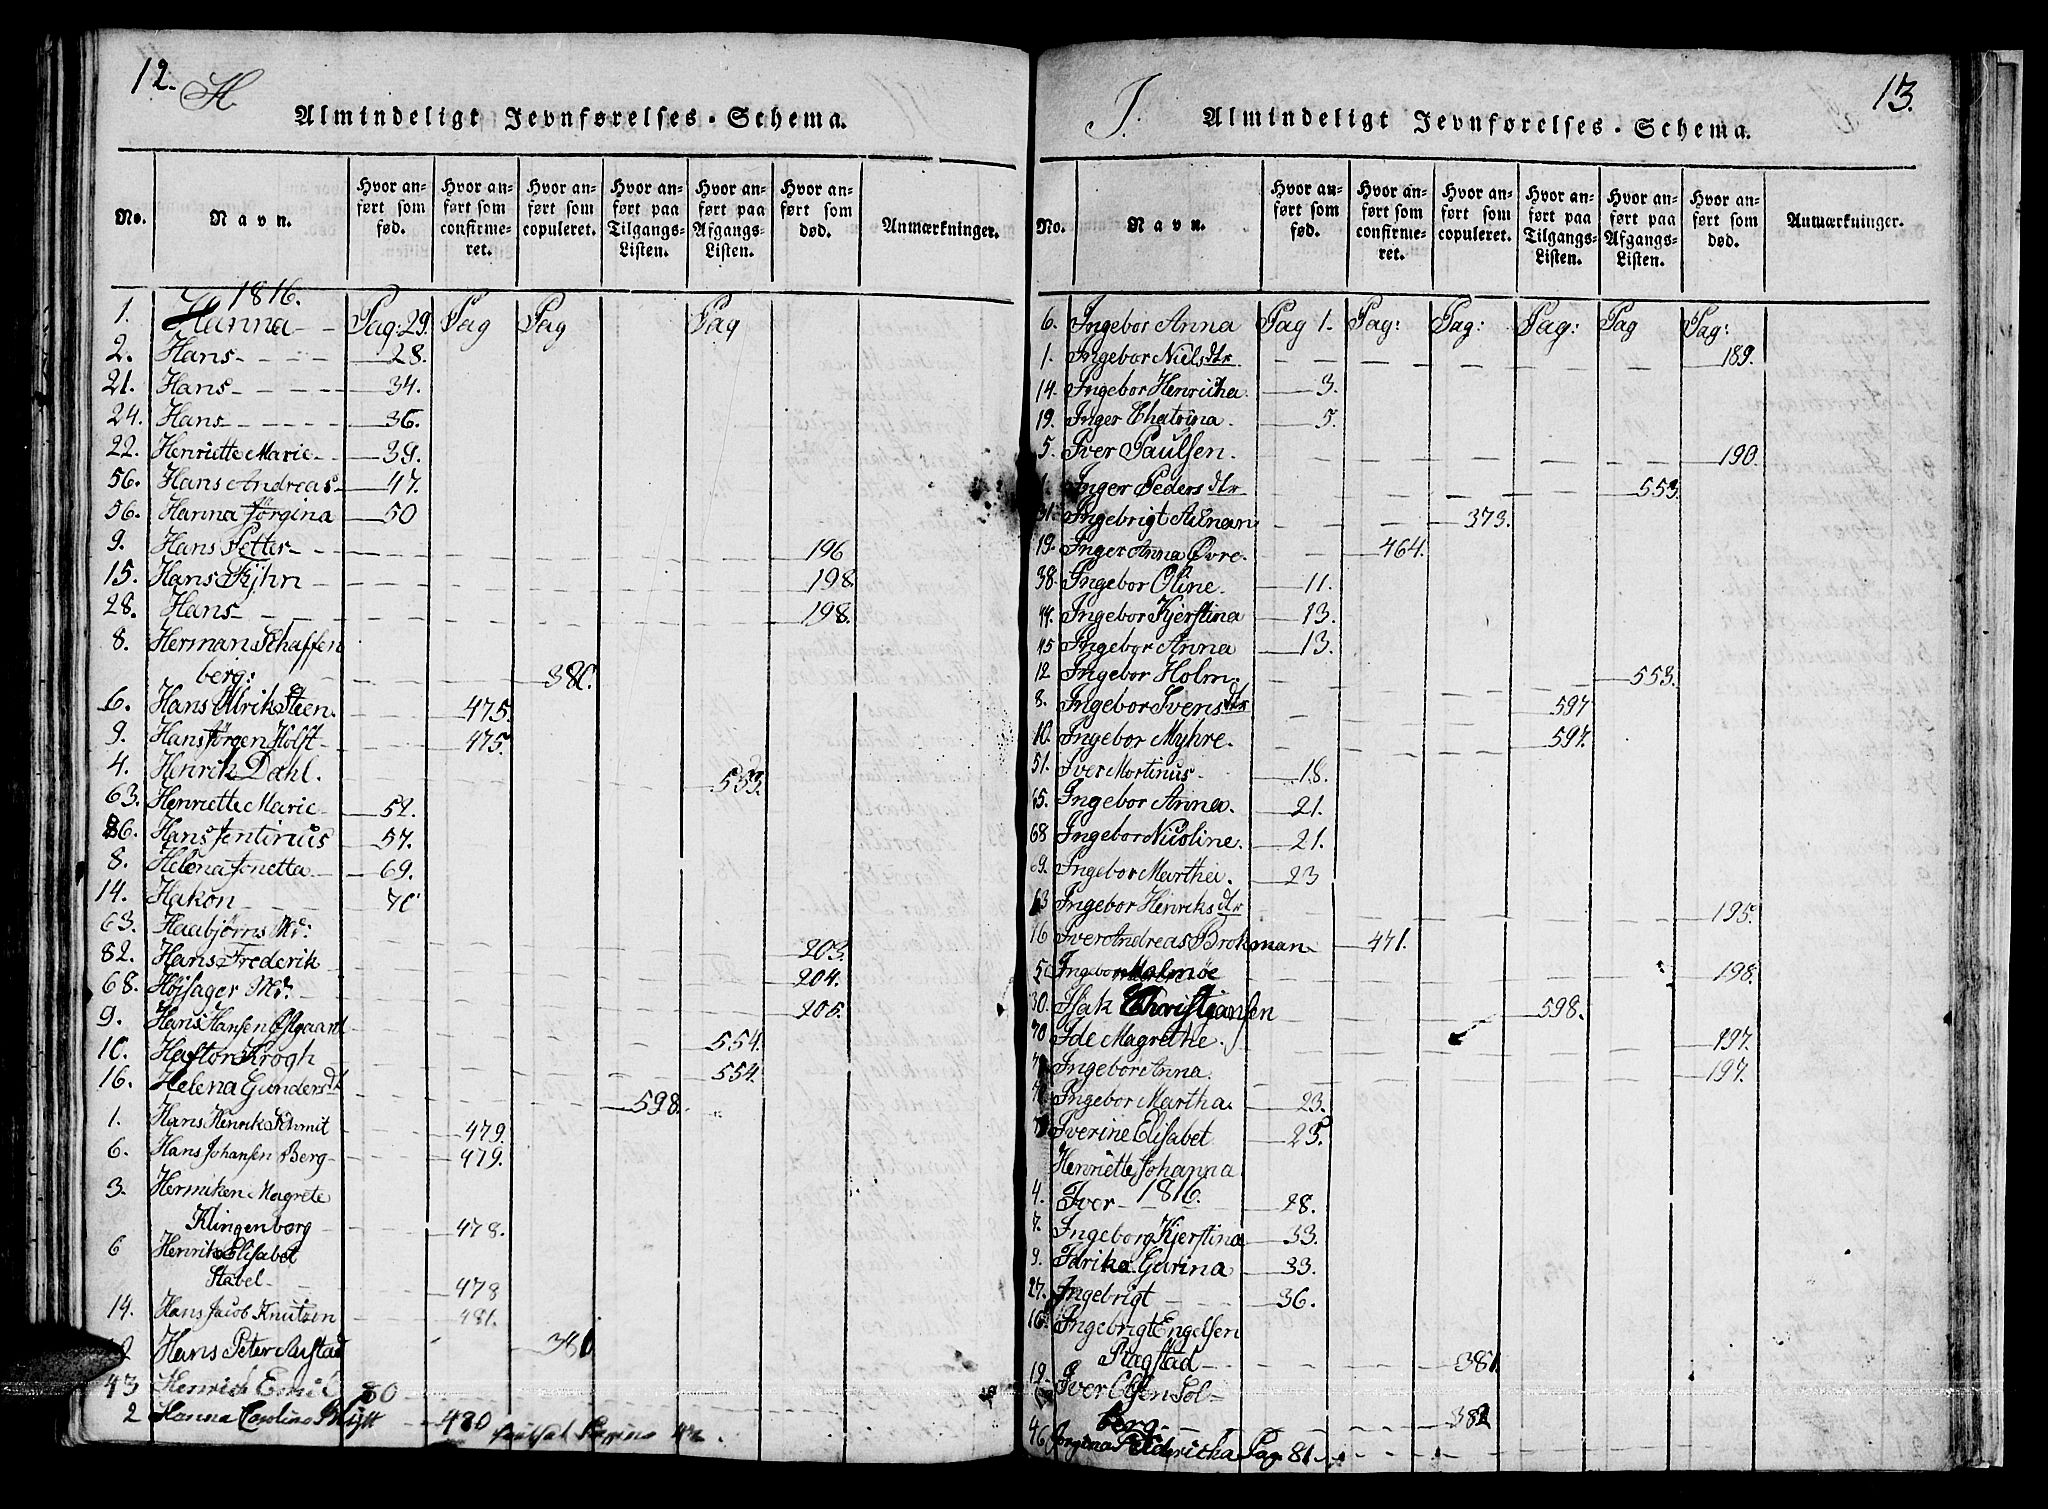 12.
H.
Almindeligt Jevnførelses-Schema.
No. | Navn. | Hvor anført som fød. | Hvor anført som confirmeret. | Hvor anført som copuleret. | Hvor anført paa Tilgangs-Listen. | Hvor anført paa Afgangs-Listen. | Hvor anført som død. | Anmærkninger.
1816.
1. Hanna Pag: 29. Pag Pag Pag
2. Hans 28.
21. Hans 34.
24. Hans 36.
22. Henriette Marie 39.
56. Hans Andreas 47.
56. Hanna Jørgina 50
9. Hans Petter 196
15. Hans Kjhn 198.
28. Hans 198.
8. Herman Schaffen
berg:
6. Hans Ulrik Steen. 475.
9. Hans Jørgen Holst 475.
4. Henrik Dahl. 553.
63. Henriette Marie 52.
86. Hans Jentinus 57.
8. Helena Jonetta 69.
14. Hakon
63. Haabjørns Mr: 203.
82. Hans Frederik 204.
68. Højsager Mr: 205.
9. Hans Hansen Østgaard 554.
10. Hastor Krogh 554.
16. Helena Gundersdtr 598.
1. Hans Henrik Schmit 479.
6. Hans Johansen Berg 479.
3. Hermiken Magrete
Klingenborg 478.
6 Henrika Elisabet
Stabel 478
14. Hans Jacob Knutsen 481.
Hans Peter Austad
43 Henrich Emil 80
2 Hanna Carolina 480
13.
J.
Almindeligt Jevnførelses-Schema.
No. | Navn. | Hvor anført som fød. | Hvor anført som confirmeret. | Hvor anført som copuleret. | Hvor anført paa Tilgangs-Listen. | Hvor anført paa Afgangs-Listen. | Hvor anført som død. | Anmærkninger.
6. Ingebor Anna Pag 1. Pag: Pag: Pag: Pag Pag:
1. Ingebor Nielsdtr 189.
14. Ingebor Henricha 3.
19. Inger Chatrina 5.
5. Iver Paulsen. 190.
Inger Pedersdtr 553.
31. Ingebrigt 373.
19. Inger Anna Øvre. 464.
38. Ingebor Oline. 11.
44. Ingebor Kjerstina 13.
45 Ingebor Anna 13.
12 Ingebor Holm. 553.
8. Ingebor Ivensdtr 597
10. Ingebor Myhre. 597.
51. Iver Mortinus 18.
65. Ingebor Anna. 21.
68 Ingebor Nicoline. 21.
69. Ingebor Martha. 23
13 Ingebor Henriksdtr 195.
16 Iver Andreas Brokman 471.
Ingebor Malmøe 198.
30. Isak Christjansen 598.
70 Ide Magrethe. 197.
Ingebor Anna. 197.
Ingebor Martha. 23.
Iverine Elisabet 25.
Henriette Johanna
1816.
4. Iver 28.
7. Ingeborg Kjerstina 33.
9. Idrika Gurina 33.
27. Ingebrigt 36.
16. Ingebrigt Engelsen
Ringstad 381.
12. Iver Olsen Sol-
berg 382
46 Jorgina Pag. 81.